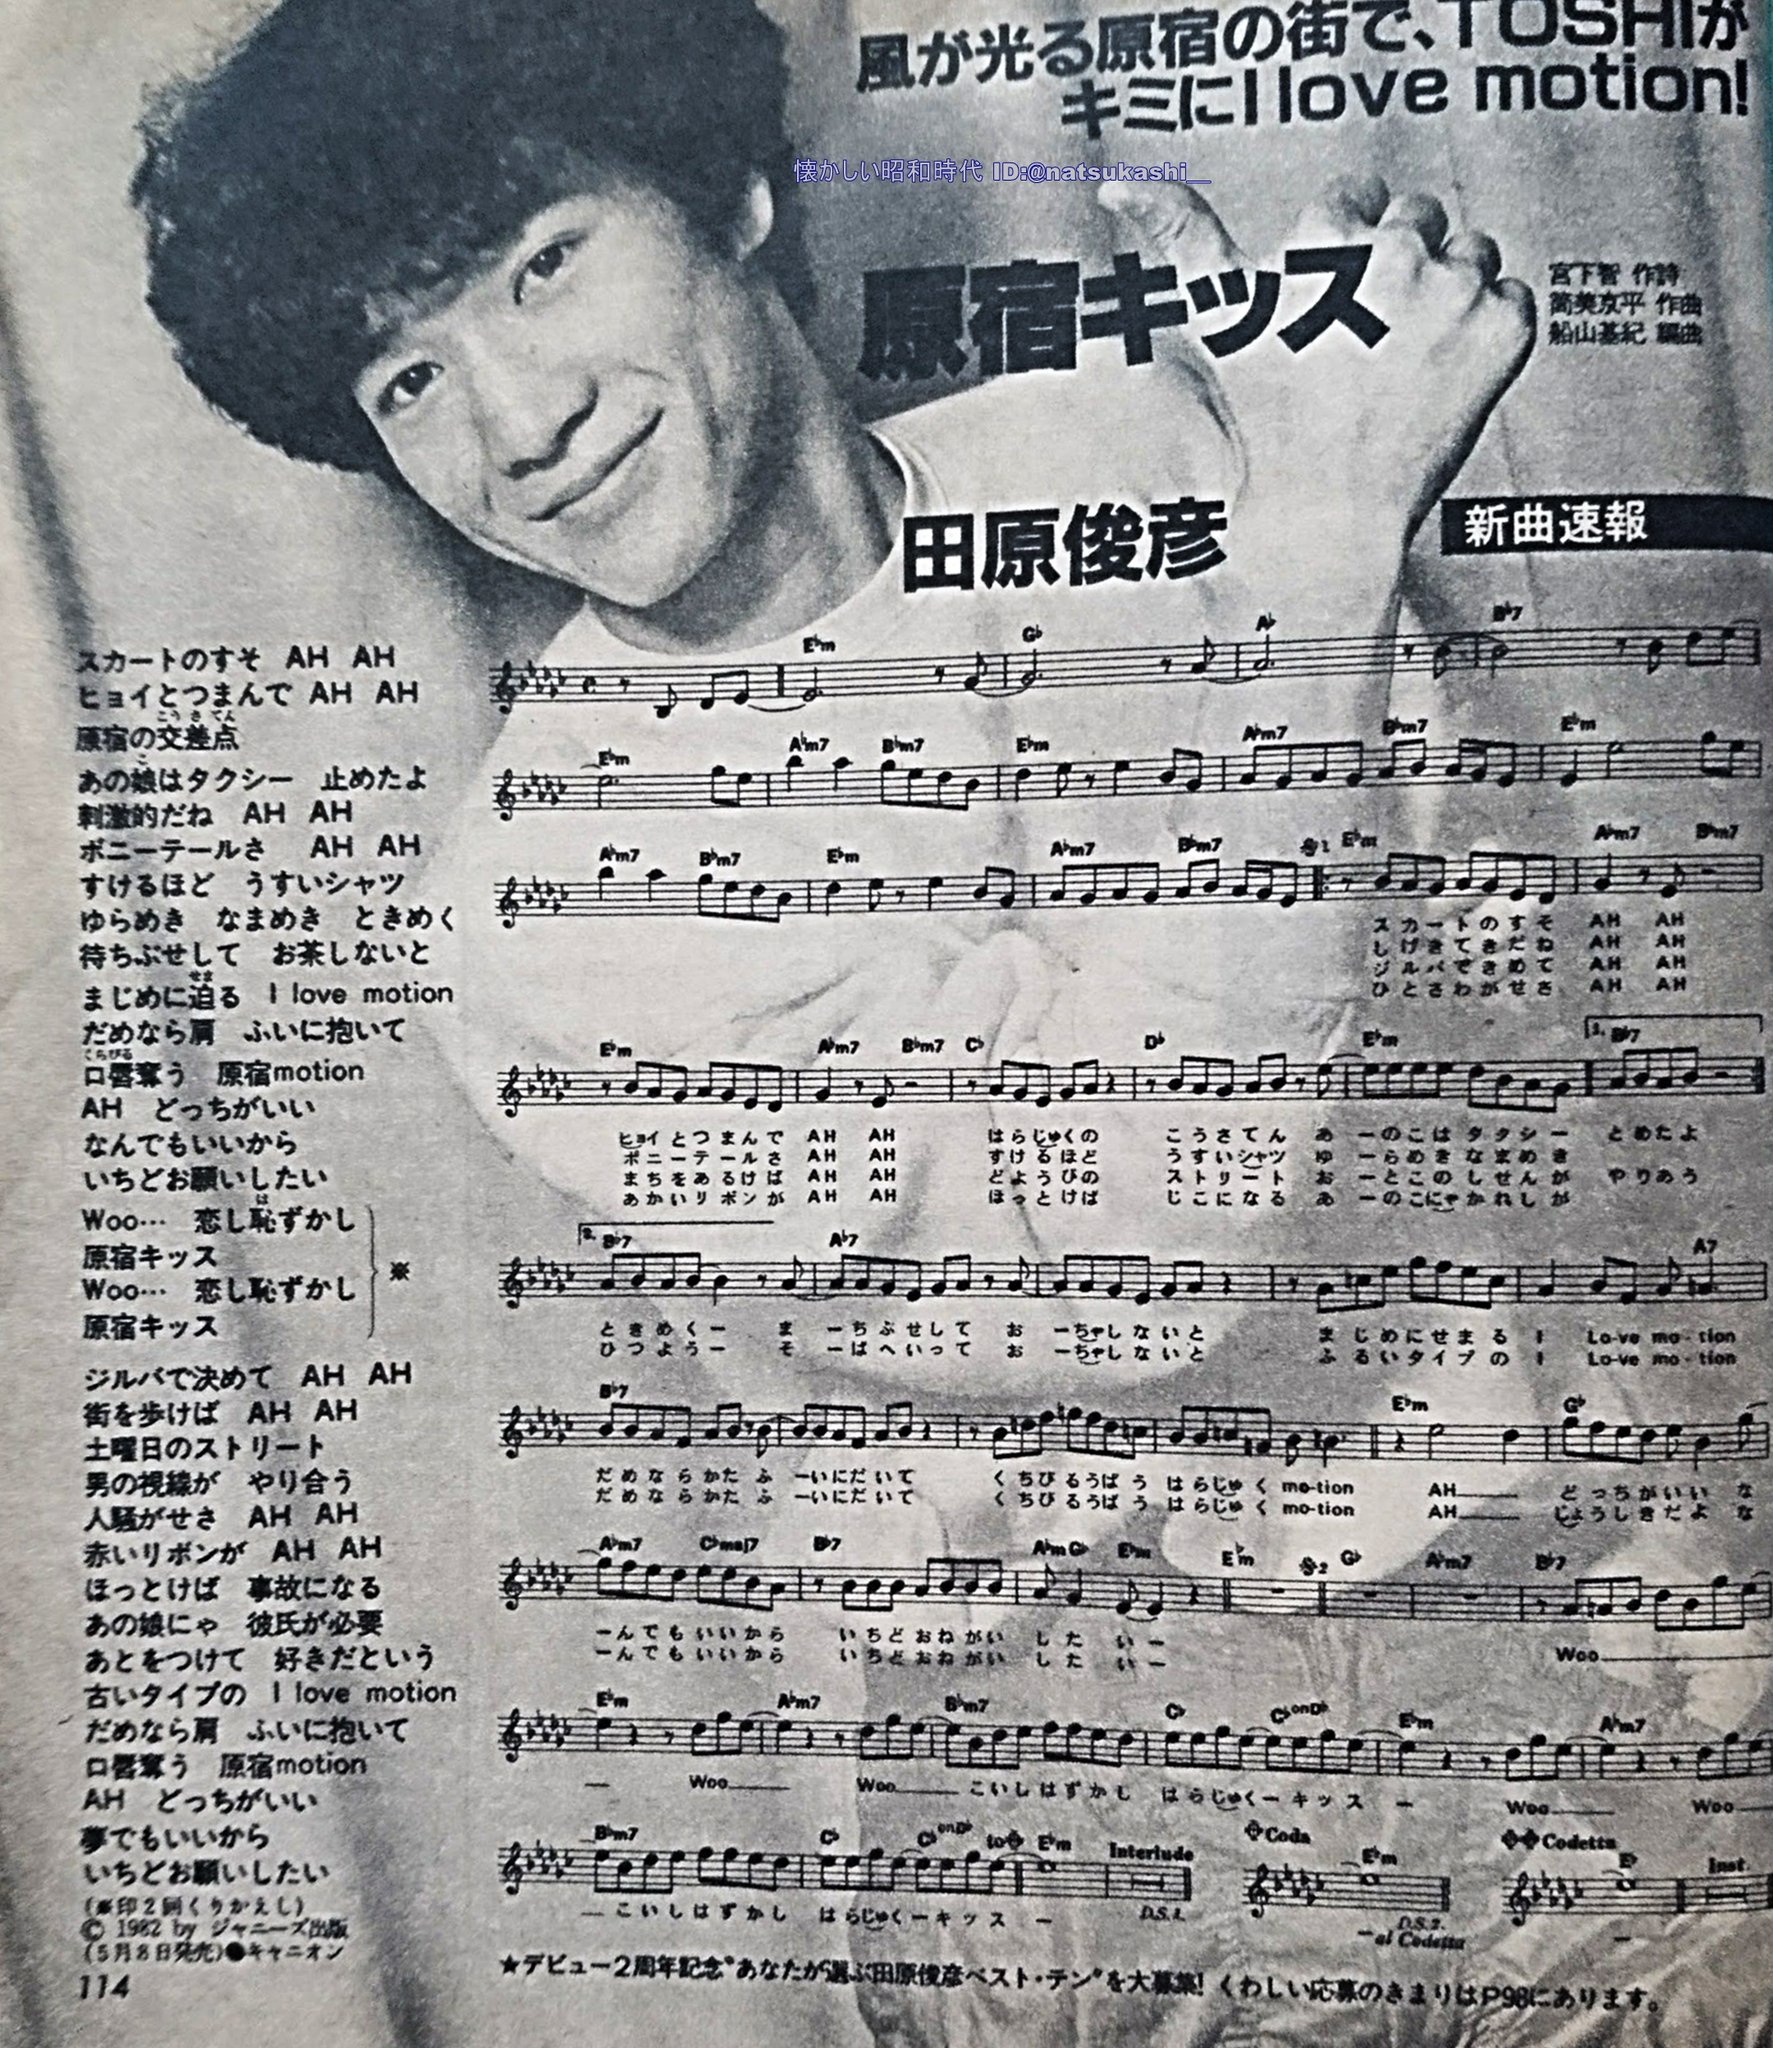 風が光る原宿の街で、TOSHIが
キミにI love motion!
懐かしい昭和時代 ID:@natsukashi__
原宿キッス
宮下智 作詩
筒美京平 作曲
船山基紀 編曲
田原俊彦
新曲速報
スカートのすそ AH AH
ヒョイとつまんで AH AH
原宿の交差点
あの娘はタクシー 止めたよ
刺激的だね AH AH
ポニーテールさ AH AH
すけるほど うすいシャツ
ゆらめき なまめき ときめく
待ちぶせして お茶しないと
まじめに迫る I love motion
だめなら肩 ふいに抱いて
口唇奪う 原宿motion
AH どっちがいい
なんでもいいから
いちどお願いしたい
Woo… 恋し恥ずかし
原宿キッス
Woo… 恋し恥ずかし
原宿キッス
※
ジルバで決めて AH AH
街を歩けば AH AH
土曜日のストリート
男の視線が やり合う
人騒がせさ AH AH
赤いリボンが AH AH
ほっとけば 事故になる
あの娘にゃ 彼氏が必要
あとをつけて 好きだという
古いタイプの I love motion
だめなら肩 ふいに抱いて
口唇奪う 原宿motion
AH どっちがいい
夢でもいいから
いちどお願いしたい
(※印2回くりかえし)
© 1982 by ジャニーズ出版
(5月8日発売)●キャニオン
114
E♭m G♭ A♭ B♭7
E♭m A♭m7 B♭m7 E♭m A♭m7 B♭m7 E♭m
A♭m7 B♭m7 E♭m A♭m7 B♭m7 E♭m A♭m7 B♭m7
スカートのすそ AH AH
しげきてきだね AH AH
ジルバできめて AH AH
ひとさわがせさ AH AH
E♭m A♭m7 B♭m7 C♭ D♭ E♭m 1. B♭7
ヒョイとつまんで AH AH はらじゅくの こうさてん あーのこはタクシー とめたよ
ポニーテールさ AH AH すけるほど うすいシャツ ゆーらめきなまめき
まちをあるけば AH AH どようびの ストリート おーとこのしせんが やりあう
あかいリボンが AH AH ほっとけば じこになる あーのこにゃかれしが
2. B♭7 A♭7 A7
ときめくー まーちぶせして おーちゃしないと まじめにせまる I Lo-ve mo-tion
ひつようー そーばへいって おーちゃしないと ふるいタイプの I Lo-ve mo-tion
B♭7 E♭m G♭
だめならかた ふーいにだいて くちびるうばう はらじゅく mo-tion AH どっちがいい な
だめならかた ふーいにだいて くちびるうばう はらじゅく mo-tion AH じょうしきだよ な
A♭m7 C♭maj7 B♭7 A♭m G♭ E♭m E♭m G♭ A♭m7 B♭7
ーんでもいいから いちどおねがい したいー
ーんでもいいから いちどおねがい したいー
Woo
E♭m A♭m7 B♭m7 C♭ C♭onD♭ E♭m A♭m7
ー Woo Woo こいしはずかし はらじゅくーキッスー Woo Woo
B♭m7 C♭ C♭onD♭ to E♭m Interlude Coda E♭m Codetta E♭ Inst.
ーこいしはずかし はらじゅくーキッスー D.S.1. D.S.2. al Codetta ー
★デビュー2周年記念“あなたが選ぶ田原俊彦ベスト・テン”を大募集! くわしい応募のきまりはP98にあります。